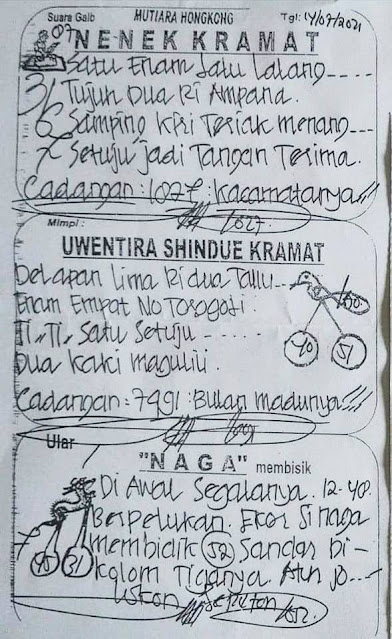 Suara Gaib MUTIARA HONGKONG Tgl: 14/07/2021
NENEK KRAMAT
Satu Enam Lalu Lalang----
Tujuh Dua Ri Ampana.
Samping Kiri Teriak menang---
Setuju jadi Tangan Terima.
Cadangan: 1027: Kacamatanya!!!
1027
Mimpi:
UWENTIRA SHINDUE KRAMAT
Delapan Lima Ri dua Tallu---
Enam Empat No Tosogoti.
Ti, Ti, Satu Setuju------
Dua Kaki maguliu.
40 51
Cadangan: 7991: Bulan madunya!!!
Ular
"NAGA" membisik
Di Awal Segalanya. 12-40.
Berpelukan. Ekor Si naga
membidik 52 Sandar Di-
kolom Tiganya.